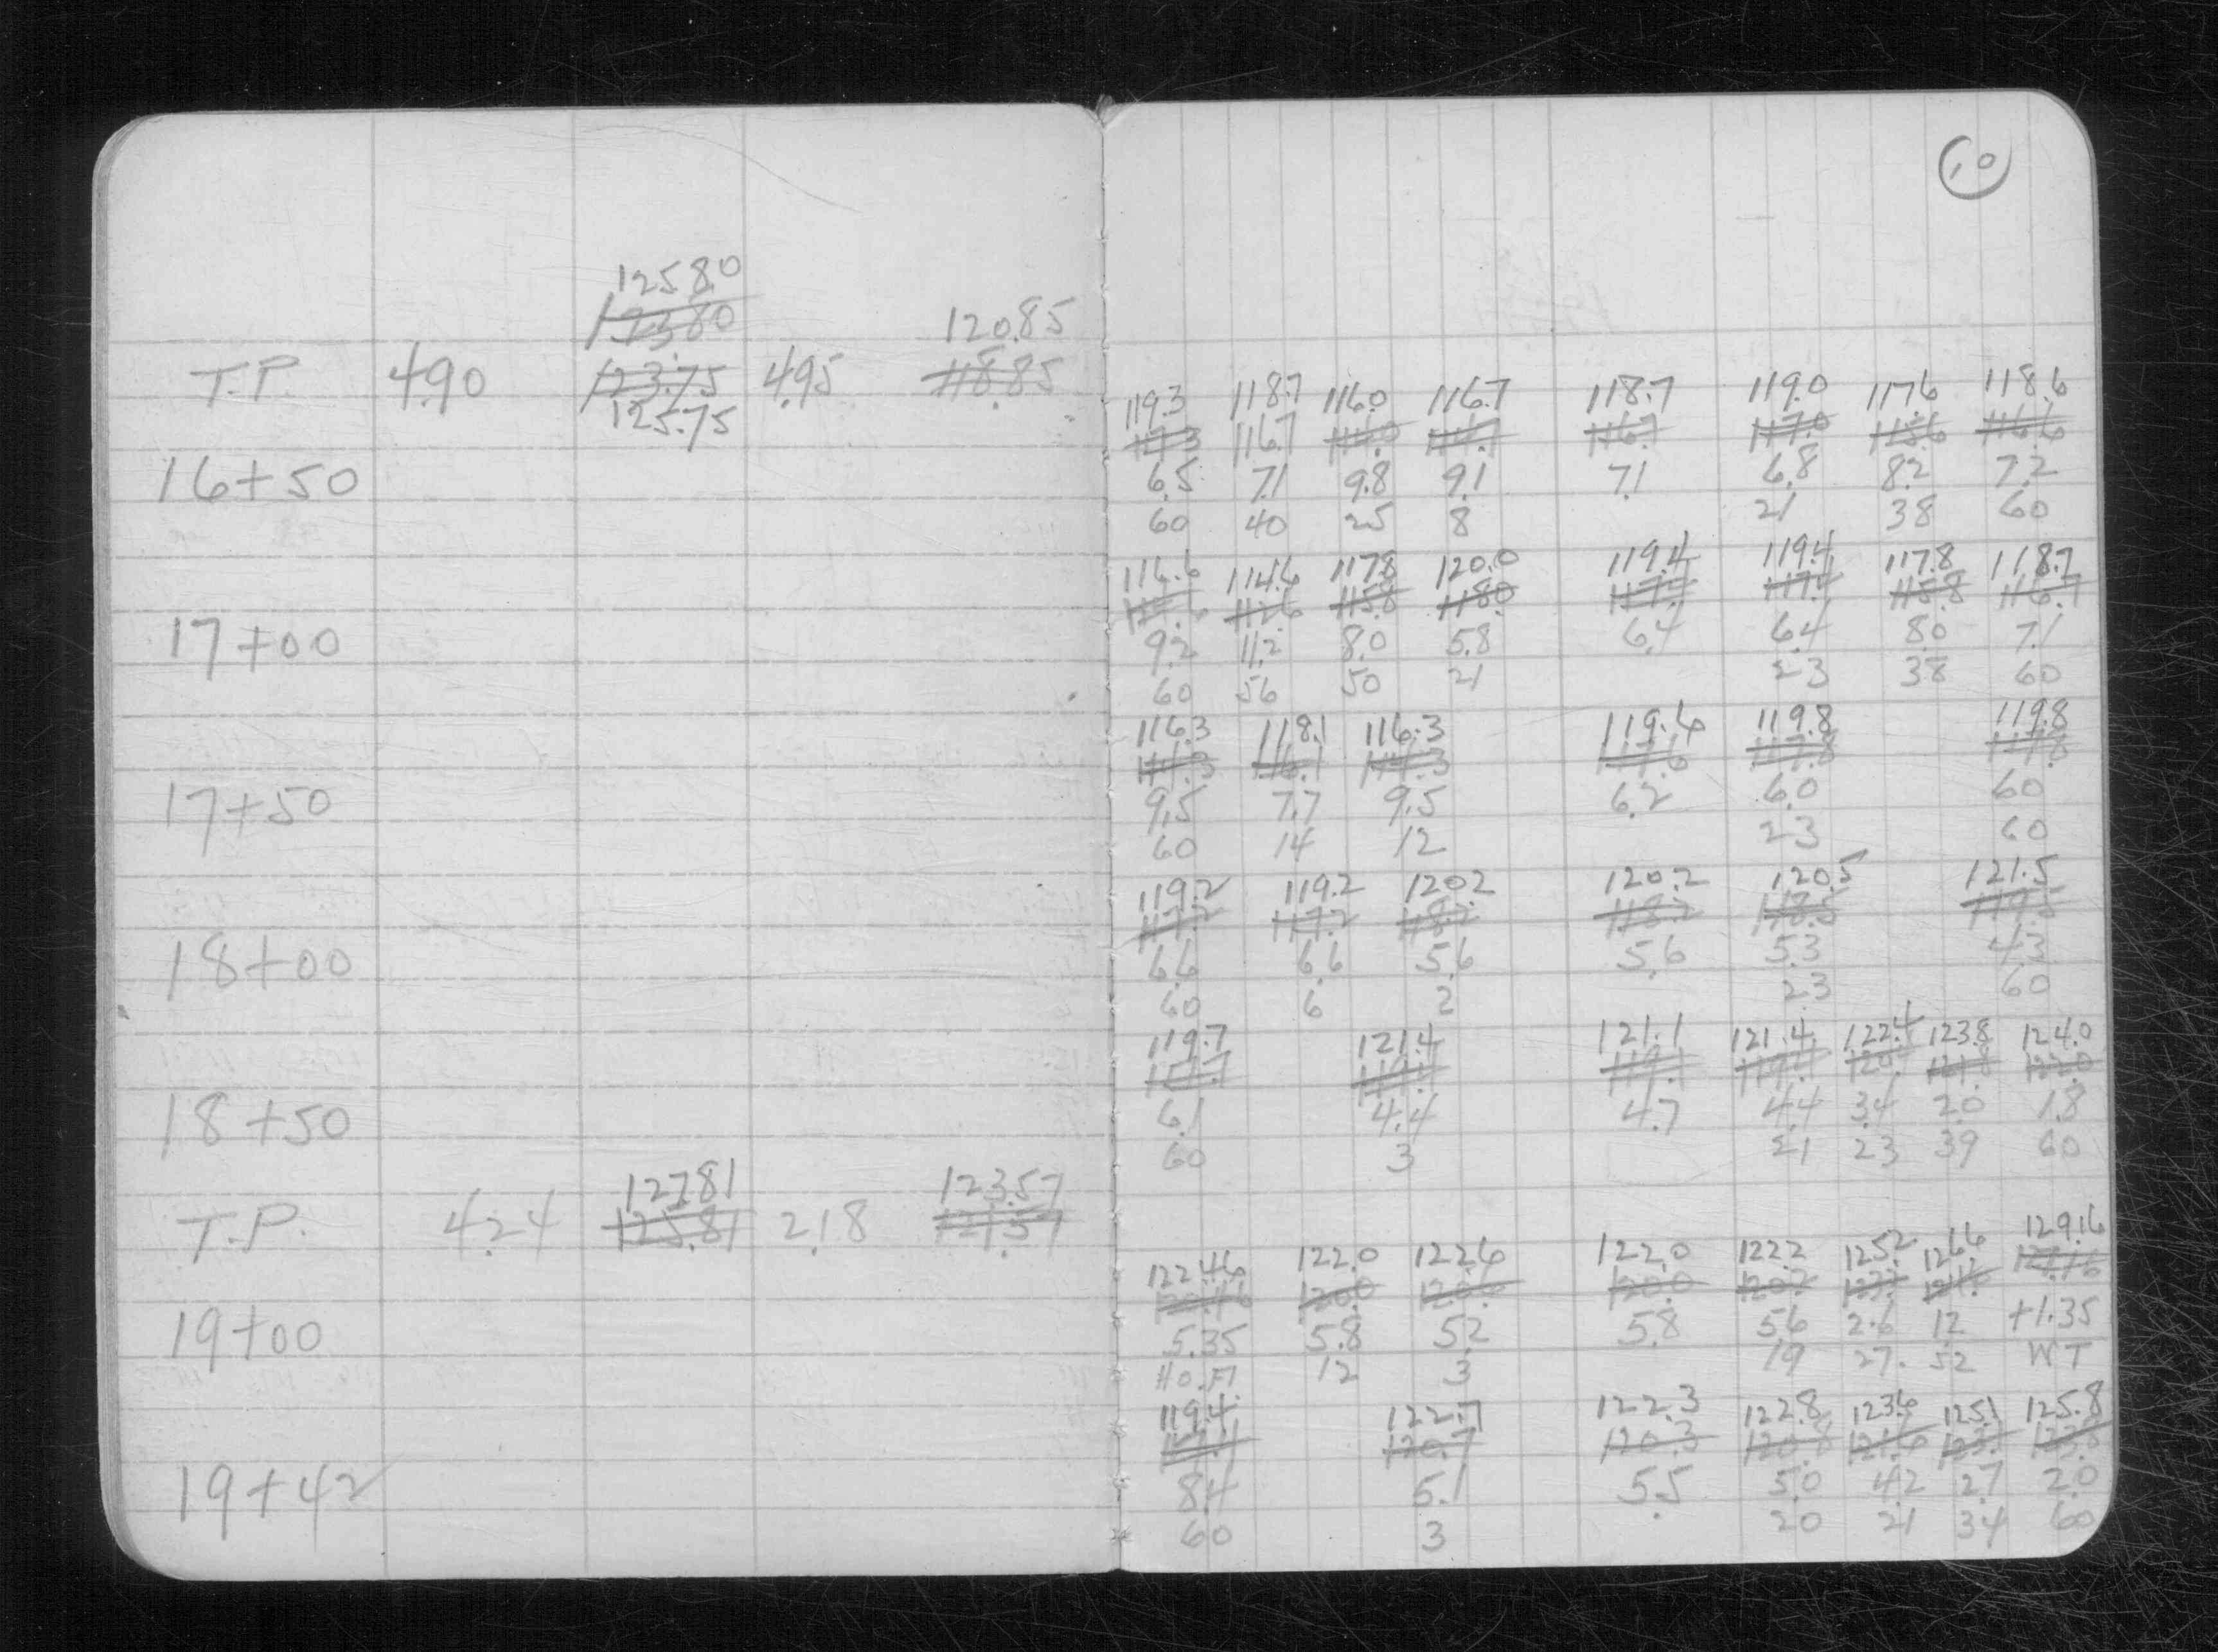 10
125.80
123.80 120.85
T.P. 4.90 123.75 4.95 118.85
125.75
119.3 118.7 116.0 116.7 118.7 119.0 117.6 118.6
117.3 116.7 114.0 114.7 116.7 117.0 115.6 116.6
16+50 6.5 7.1 9.8 9.1 7.1 6.8 8.2 7.2
60 40 25 8 21 38 60
116.6 114.6 117.8 120.0 119.4 119.4 117.8 118.7
114.6 112.6 115.8 118.0 117.4 117.4 115.8 116.7
17+00 9.2 11.2 8.0 5.8 6.4 6.4 8.0 7.1
60 56 50 21 23 38 60
116.3 118.1 116.3 119.6 119.8 119.8
114.3 116.1 114.3 117.6 117.8 117.8
17+50 9.5 7.7 9.5 6.2 6.0 60
60 14 12 23 60
119.2 119.2 120.2 120.2 120.5 121.5
117.2 117.2 118.2 118.2 118.5 119.5
18+00 6.6 6.6 5.6 5.6 5.3 4.3
60 6 2 23 60
119.7 121.4 121.1 121.4 122.4 123.8 124.0
117.7 119.4 119.1 119.4 120. 121.8 122.0
18+50 6.1 4.4 4.7 4.4 3.4 2.0 1.8
60 3 21 23 39 60
127.81 123.57
T.P. 4.24 125.81 2.18 121.57
122.46 122.0 122.6 122.0 122.2 125.2 126.6 129.16
120.46 120.0 120.6 120.0 120.2 127.16
19+00 5.35 5.8 5.2 5.8 5.6 2.6 12 +1.35
12 3 19 27. 52 WT
119.4 122.7 122.3 122.8 123.6 125.1 125.8
117.4 120.7 120.3 120.8 121.6 123.1 123.8
19+42 8.4 5.1 5.5 5.0 4.2 2.7 2.0
60 3 20 21 34 60